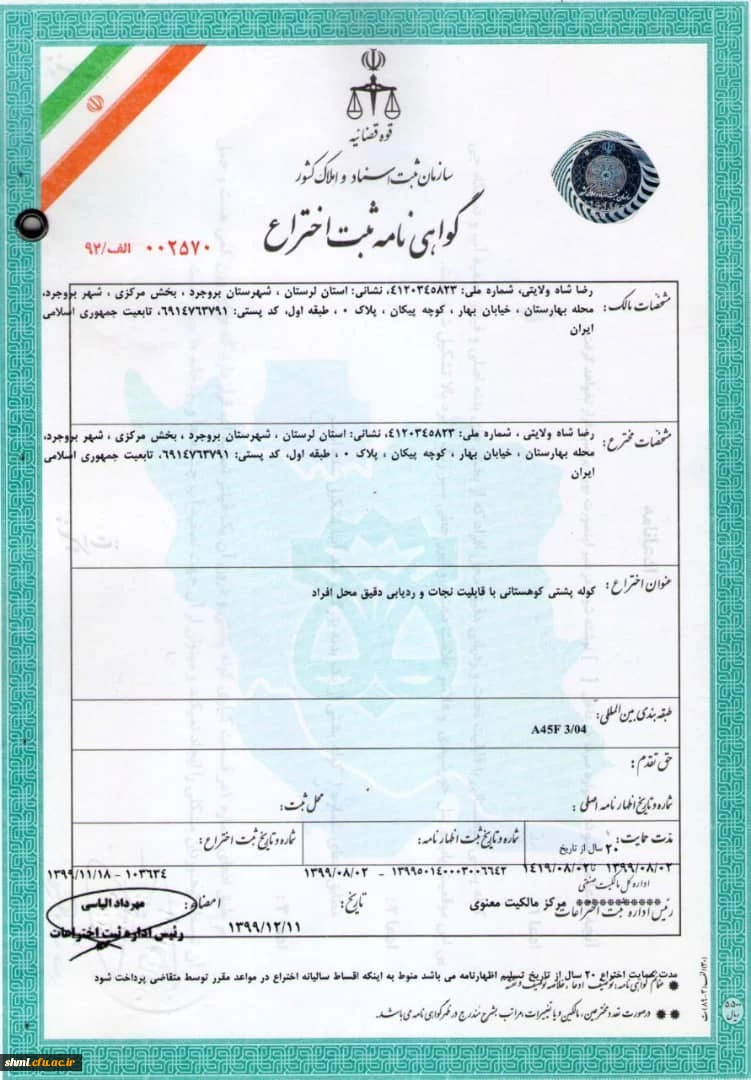 قوه قضائیه
سازمان ثبت اسناد و املاک کشور
گواهی نامه ثبت اختراع
۰۰۲۵۷۰ الف/۹۳
مشخصات مالک: رضا شاه ولایتی، شماره ملی: ۴۱۲۰۳۴۵۸۲۳، نشانی: استان لرستان ، شهرستان بروجرد ، بخش مرکزی ، شهر بروجرد،
محله بهارستان ، خیابان بهار ، کوچه پیکان ، پلاک ۰ ، طبقه اول، کد پستی: ۶۹۱۴۷۶۳۷۹۱، تابعیت جمهوری اسلامی
ایران
مشخصات مخترع: رضا شاه ولایتی ، شماره ملی: ۴۱۲۰۳۴۵۸۲۳، نشانی: استان لرستان ، شهرستان بروجرد ، بخش مرکزی ، شهر بروجرد،
محله بهارستان ، خیابان بهار ، کوچه پیکان ، پلاک ۰ ، طبقه اول، کد پستی: ۶۹۱۴۷۶۳۷۹۱، تابعیت جمهوری اسلامی
ایران
عنوان اختراع: کوله پشتی کوهستانی با قابلیت نجات و ردیابی دقیق محل افراد
طبقه بندی بین المللی:
A45F 3/04
حق تقدم:
شماره و تاریخ اظهار نامه اصلی: محل ثبت:
مدت حمایت: ۲۰ سال از تاریخ شماره و تاریخ ثبت اظهار نامه: شماره و تاریخ ثبت اختراع:
۱۳۹۹/۰۸/۰۲ تا ۱۴۱۹/۰۸/۰۲ ۱۳۹۹۵۰۱۴۰۰۰۳۰۰۶۶۴۲ - ۱۳۹۹/۰۸/۰۲ ۱۰۳۶۳۴ - ۱۳۹۹/۱۱/۱۸
اداره کل مالکیت صنعتی
رئیس اداره ثبت اختراعات مرکز مالکیت معنوی تاریخ: امضاء: مهرداد الیاسی
۱۳۹۹/۱۲/۱۱ رئیس اداره ثبت اختراعات
مدت حمایت اختراع ۲۰ سال از تاریخ تسلیم اظهارنامه می باشد منوط به اینکه اقساط سالیانه اختراع در مواعد مقرر توسط متقاضی پرداخت شود
* ضمائم گواهی نامه: توصیف، ادعا، خلاصه توصیف و نقشه
** در صورت تعدد مخترعین، مالکین و یا تغییرات، مراتب بشرح مندرج در ظهر گواهی نامه می باشد.
۵۵۰
ریال
shml.cfu.ac.ir